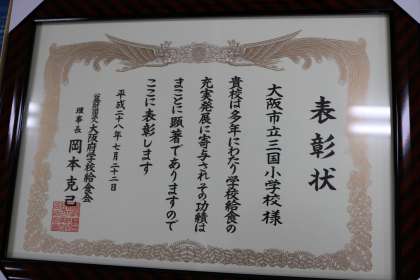 表彰状
大阪市立三国小学校 様
貴校は多年にわたり学校給食の
充実発展に寄与されその功績は
まことに顕著でありますので
ここに表彰します
平成二十八年 七月二十二日
公益財団法人 大阪府学校給食会
理事長 岡本克己